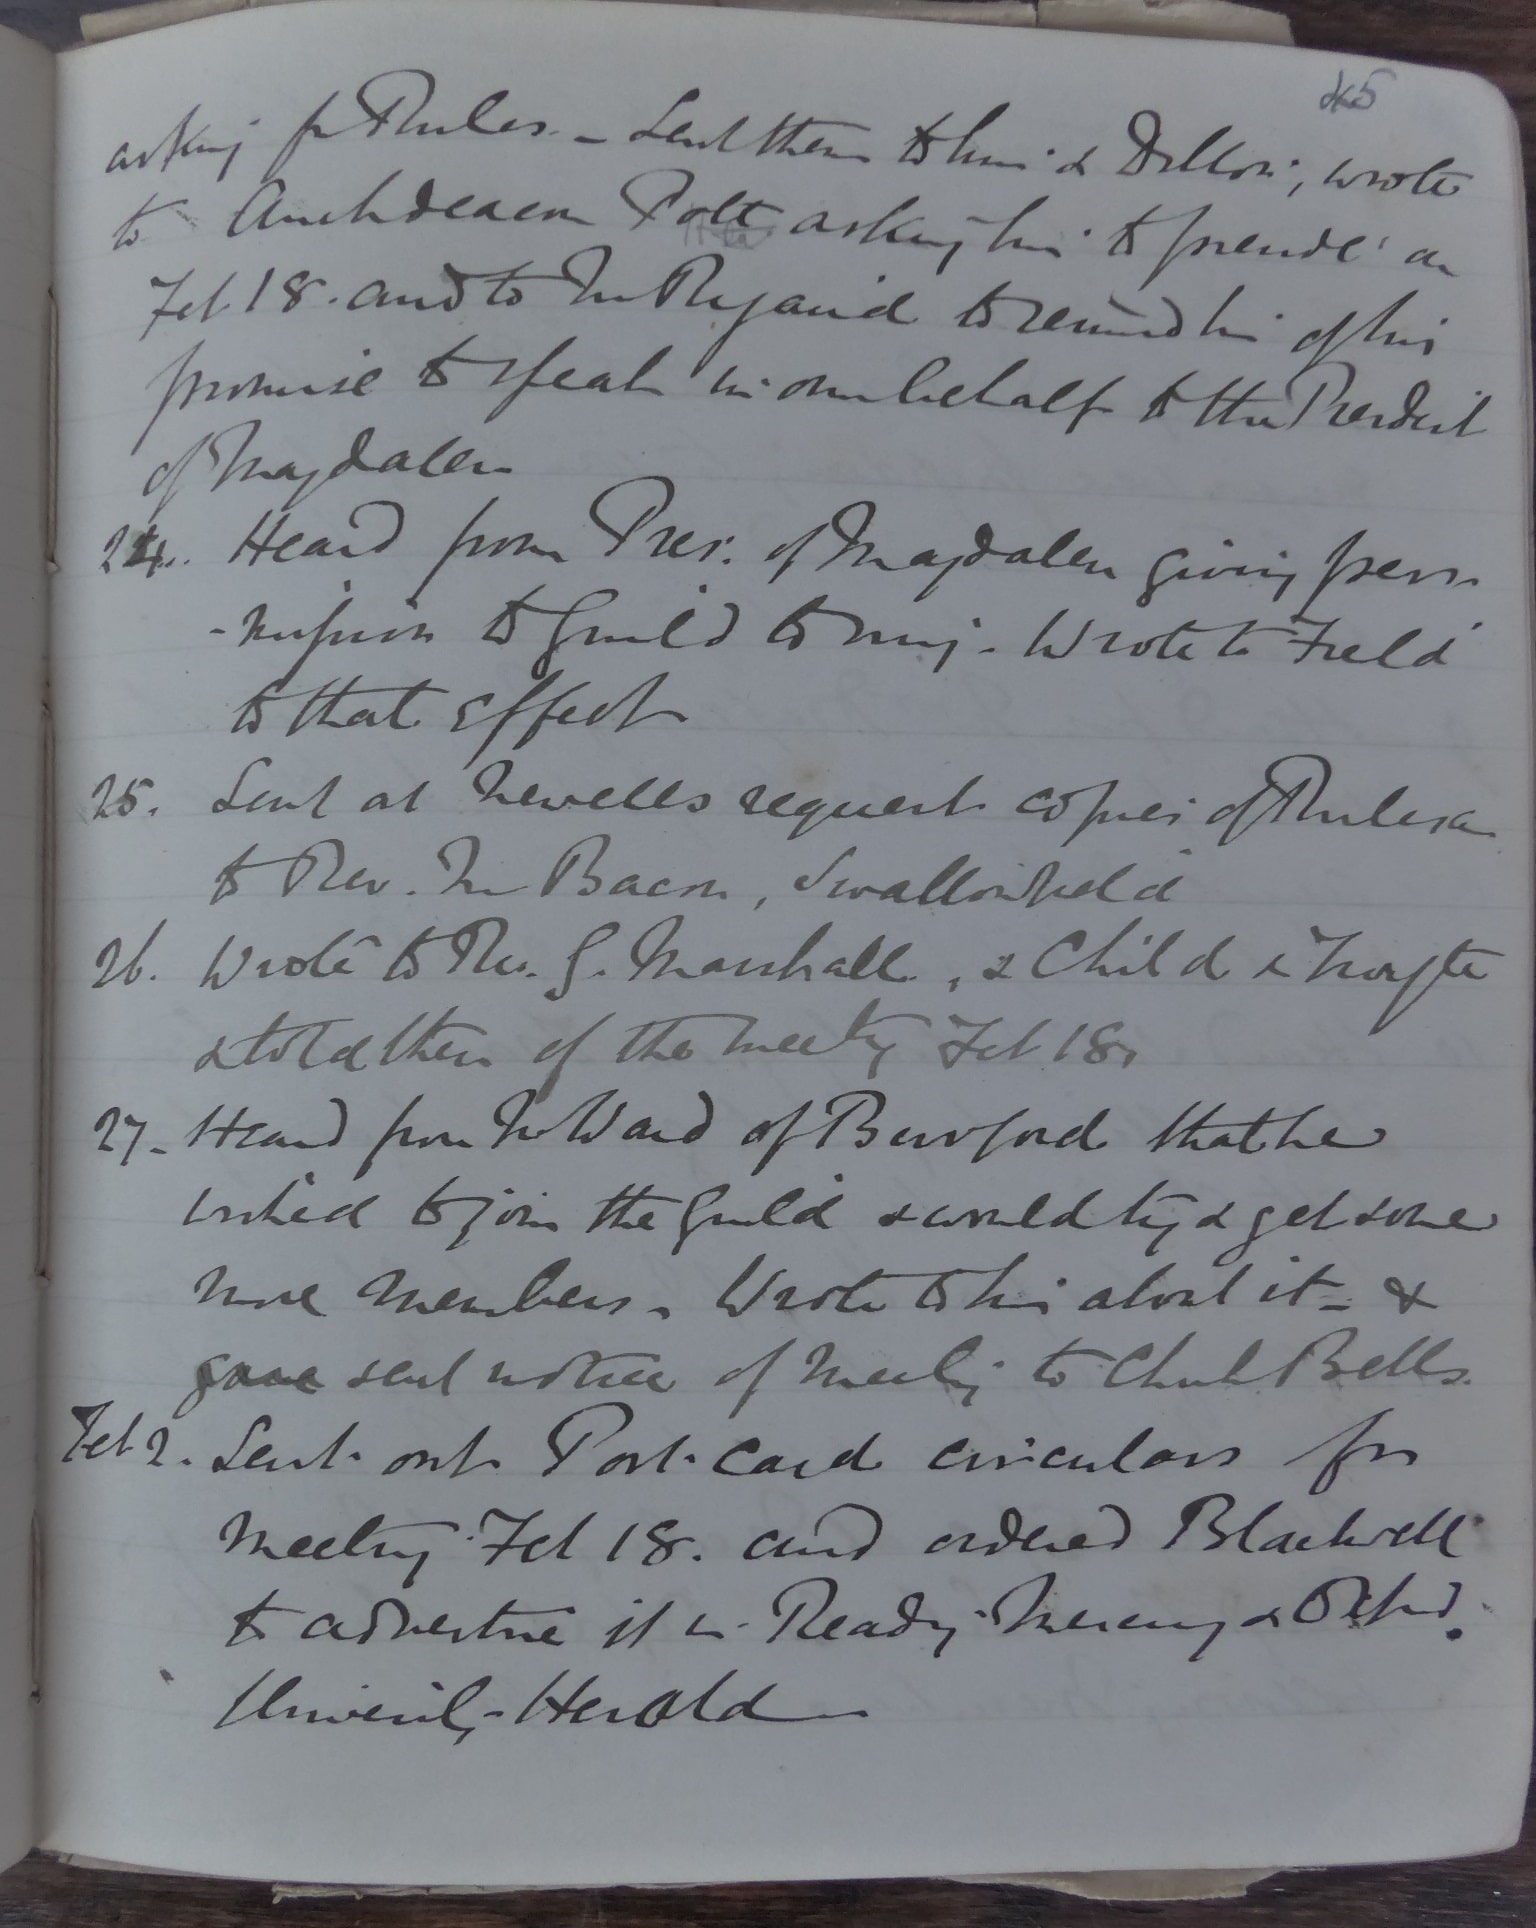 45
asking for Rules. - Sent them to him & Dillon; wrote
to Archdeacon Pott asking him to preside on
Feb 18. and to Mr Rigaud to remind him of his
promise to speak in our behalf to the President
of Magdalen
24. Heard from Pres: of Magdalen giving perm
-ission to Guild to ring. Wrote to Field
to that effect
25. Sent at Newells request copies of Rules &c
to Rev. Mr Bacon, Swallowfield
26. Wrote to Rev. G. Marshall, & Child &
& told them of the meeting Feb 18.
27. Heard from Mr Ward of Burford that he
wished to join the Guild & would try & get some
more members. Wrote to him about it - &
gave sent notice of Meeting to Church Bells.
Feb 2. Sent out Post-card circulars for
Meeting Feb 18. and ordered Blackwell
to advertise it in Readg Mercury & Oxford.
University Herald